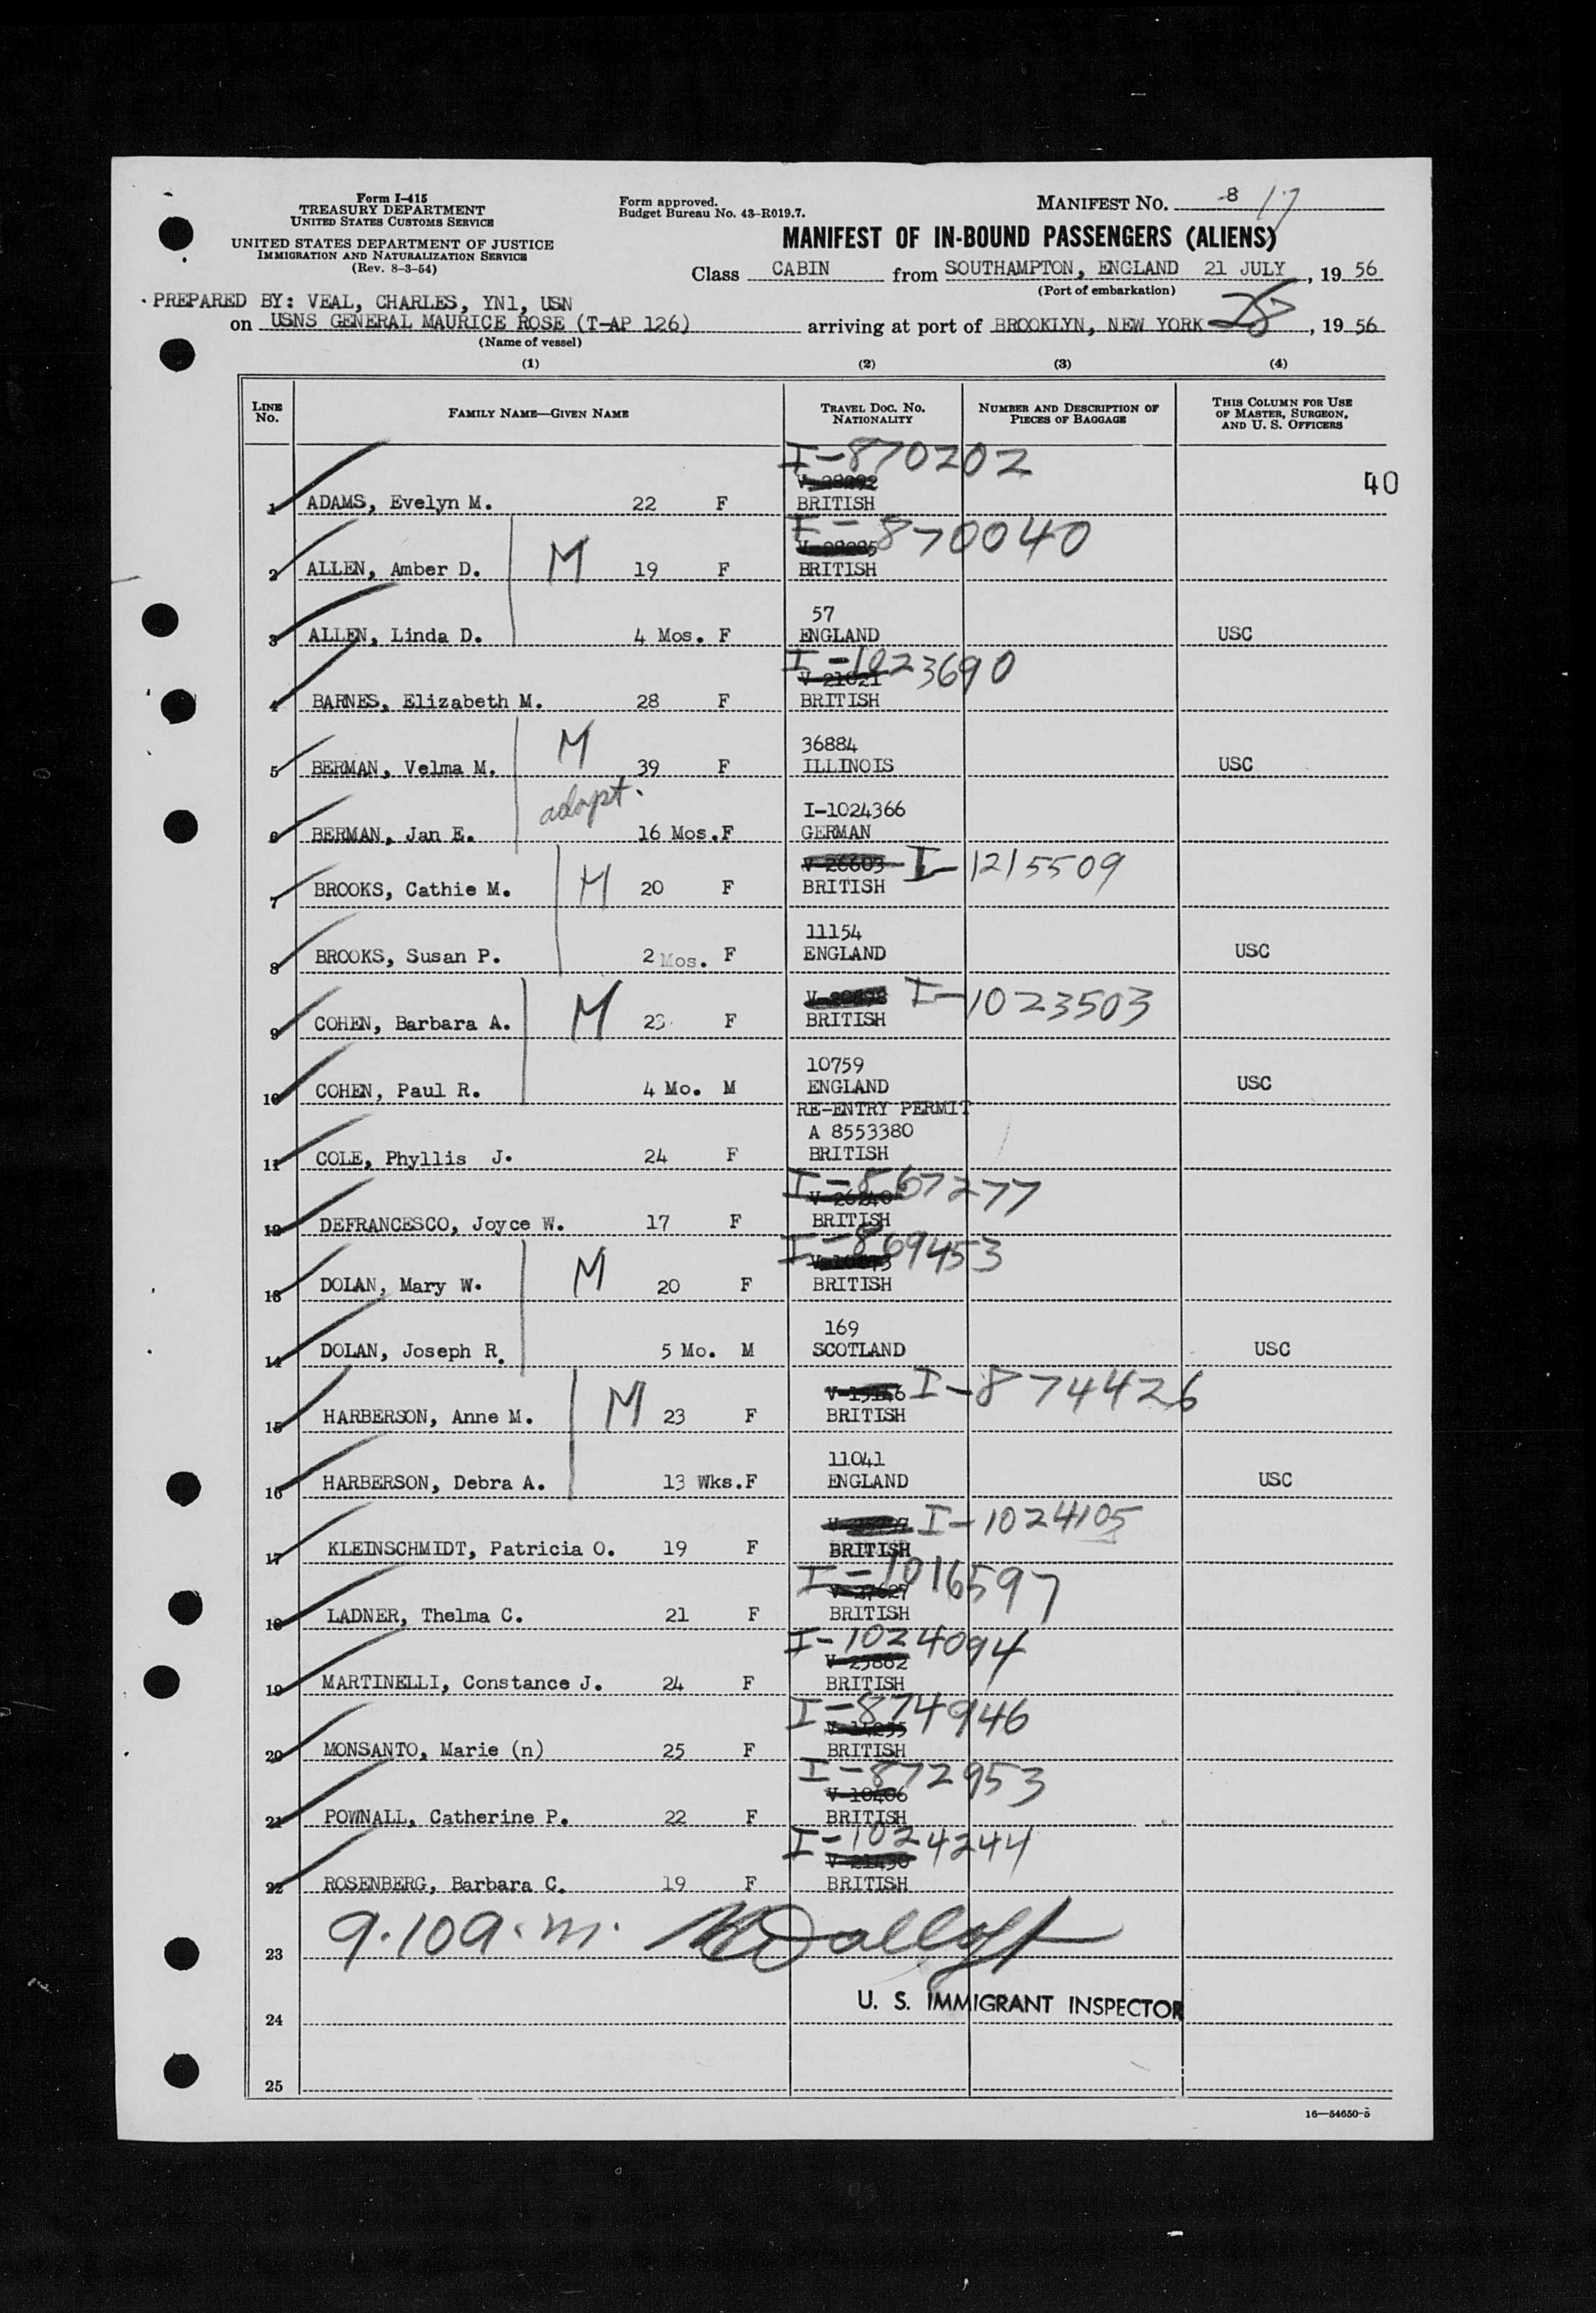 Form I-415
TREASURY DEPARTMENT
UNITED STATES CUSTOMS SERVICE
UNITED STATES DEPARTMENT OF JUSTICE
IMMIGRATION AND NATURALIZATION SERVICE
(Rev. 8-3-54)
Form approved.
Budget Bureau No. 43-R019.7.
MANIFEST NO. 8 / 17
MANIFEST OF IN-BOUND PASSENGERS (ALIENS)
Class CABIN from SOUTHAMPTON, ENGLAND 21 JULY, 19 56
(Port of embarkation)
PREPARED BY: VEAL, CHARLES, YN1, USN
on USNS GENERAL MAURICE ROSE (T-AP 126) arriving at port of BROOKLYN, NEW YORK 28, 19 56
(Name of vessel)
(1) (2) (3) (4)
LINE NO. FAMILY NAME—GIVEN NAME TRAVEL DOC. NO. NATIONALITY NUMBER AND DESCRIPTION OF PIECES OF BAGGAGE THIS COLUMN FOR USE OF MASTER, SURGEON, AND U. S. OFFICERS
I-870202
40
1 ADAMS, Evelyn M. 22 F BRITISH
I-870040
2 ALLEN, Amber D. M 19 F BRITISH
57
3 ALLEN, Linda D. 4 Mos. F ENGLAND USC
I-1023690
V-21021
4 BARNES, Elizabeth M. 28 F BRITISH
36884
5 BERMAN, Velma M. M 39 F ILLINOIS USC
adopt.
I-1024366
6 BERMAN, Jan E. 16 Mos. F GERMAN
V-26603 I-1215509
7 BROOKS, Cathie M. M 20 F BRITISH
11154
8 BROOKS, Susan P. 2 Mos. F ENGLAND USC
I-1023503
9 COHEN, Barbara A. M 23 F BRITISH
10759
10 COHEN, Paul R. 4 Mo. M ENGLAND USC
RE-ENTRY PERMIT
A 8553380
11 COLE, Phyllis J. 24 F BRITISH
I-867277
12 DEFRANCESCO, Joyce W. 17 F BRITISH
I-869453
13 DOLAN, Mary W. M 20 F BRITISH
169
14 DOLAN, Joseph R. 5 Mo. M SCOTLAND USC
I-874426
15 HARBERSON, Anne M. M 23 F BRITISH
11041
16 HARBERSON, Debra A. 13 Wks. F ENGLAND USC
I-1024105
17 KLEINSCHMIDT, Patricia O. 19 F BRITISH
I-1016597
V-27627
18 LADNER, Thelma C. 21 F BRITISH
I-1024094
V-25862
19 MARTINELLI, Constance J. 24 F BRITISH
I-874946
20 MONSANTO, Marie (n) 25 F BRITISH
I-872953
V-10406
21 POWNALL, Catherine P. 22 F BRITISH
I-1024244
V-21430
22 ROSENBERG, Barbara C. 19 F BRITISH
9.10 a.m.
23
U. S. IMMIGRANT INSPECTOR
24
25
16—54650-5